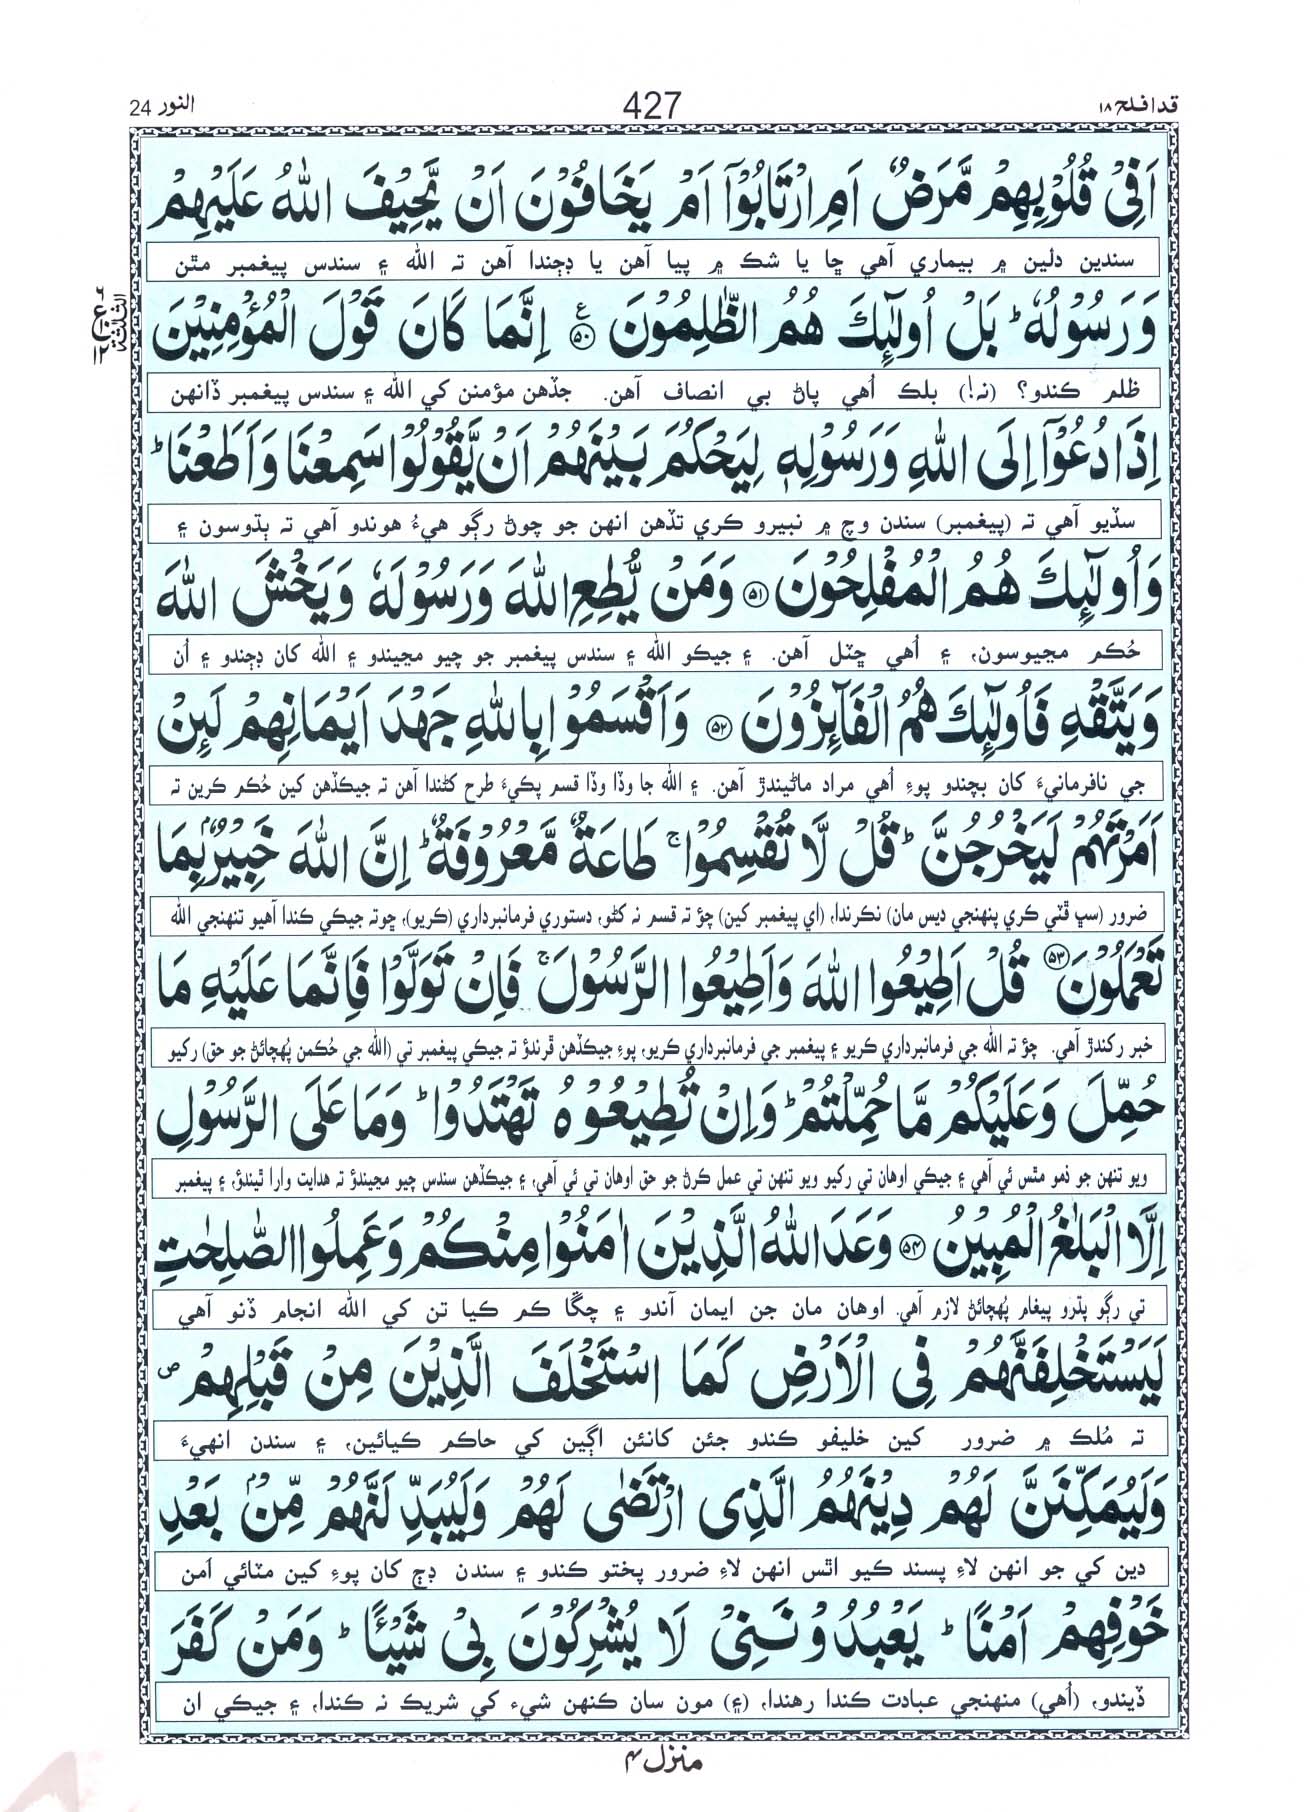 قد افلح ۱۸ 427 النور 24
اَفِیْ قُلُوْبِهِمْ مَّرَضٌ اَمِ ارْتَابُوْۤا اَمْ یَخَافُوْنَ اَنْ یَّحِیْفَ اللّٰهُ عَلَیْهِمْ
سندين دلين ۾ بيماري آهي ڇا يا شڪ ۾ پيا آهن يا ڊڄندا آهن تہ الله ۽ سندس پيغمبر مٿن
وَ رَسُوْلُهٗ ؕ بَلْ اُولٰٓىِٕكَ هُمُ الظّٰلِمُوْنَ ﴿۵۰﴾ ع اِنَّمَا كَانَ قَوْلَ الْمُؤْمِنِیْنَ
الثلثة
ظلم ڪندو؟ (نہ!) بلڪ اُهي پاڻ بي انصاف آهن. جڏهن مؤمنن کي الله ۽ سندس پيغمبر ڏانهن
اِذَا دُعُوْۤا اِلَی اللّٰهِ وَ رَسُوْلِهٖ لِیَحْكُمَ بَیْنَهُمْ اَنْ یَّقُوْلُوْا سَمِعْنَا وَ اَطَعْنَا ؕ
سڏيو آهي تہ (پيغمبر) سندن وچ ۾ نبيرو ڪري تڏهن انهن جو چوڻ رڳو هيءُ هوندو آهي تہ ٻڌوسون ۽
وَ اُولٰٓىِٕكَ هُمُ الْمُفْلِحُوْنَ ﴿۵۱﴾ وَ مَنْ یُّطِعِ اللّٰهَ وَ رَسُوْلَهٗ وَ یَخْشَ اللّٰهَ
حُڪم مڃيوسون، ۽ اُهي ڇٽل آهن. ۽ جيڪو الله ۽ سندس پيغمبر جو چيو مڃيندو ۽ الله کان ڊڄندو ۽ اُن
وَ یَتَّقْهِ فَاُولٰٓىِٕكَ هُمُ الْفَآىِٕزُوْنَ ﴿۵۲﴾ وَ اَقْسَمُوْا بِاللّٰهِ جَهْدَ اَیْمَانِهِمْ لَىِٕنْ
جي نافرمانيءَ کان بچندو پوءِ اُهي مراد ماڻيندڙ آهن. ۽ الله جا وڏا وڏا قسم پڪيءَ طرح کڻندا آهن تہ جيڪڏهن کين حُڪم ڪرين تہ
اَمَرْتَهُمْ لَیَخْرُجُنَّ ؕ قُلْ لَّا تُقْسِمُوْا ۚ طَاعَةٌ مَّعْرُوْفَةٌ ؕ اِنَّ اللّٰهَ خَبِیْرٌۢ بِمَا
ضرور (سڀ ڦٽي ڪري پنهنجي ديس مان) نڪرندا، (اي پيغمبر کين) چؤ تہ قسم نہ کڻو، دستوري فرمانبرداري (ڪريو)، ڇوتہ جيڪي ڪندا آهيو تنهنجي الله
تَعْمَلُوْنَ ﴿۵۳﴾ قُلْ اَطِیْعُوا اللّٰهَ وَ اَطِیْعُوا الرَّسُوْلَ ۚ فَاِنْ تَوَلَّوْا فَاِنَّمَا عَلَیْهِ مَا
خبر رکندڙ آهي. چؤ تہ الله جي فرمانبرداري ڪريو ۽ پيغمبر جي فرمانبرداري ڪريو، پوءِ جيڪڏهن ڦرندؤ تہ جيڪي پيغمبر تي (الله جي حُڪمن پُهچائڻ جو حق) رکيو
حُمِّلَ وَ عَلَیْكُمْ مَّا حُمِّلْتُمْ ؕ وَ اِنْ تُطِیْعُوْهُ تَهْتَدُوْا ؕ وَ مَا عَلَی الرَّسُوْلِ
ويو تنهن جو ذمو مٿس ئي آهي ۽ جيڪي اوهان تي رکيو ويو تنهن تي عمل ڪرڻ جو حق اوهان تي ئي آهي، ۽ جيڪڏهن سندس چيو مڃيندؤ تہ هدايت وارا ٿيندؤ، ۽ پيغمبر
اِلَّا الْبَلٰغُ الْمُبِیْنُ ﴿۵۴﴾ وَعَدَ اللّٰهُ الَّذِیْنَ اٰمَنُوْا مِنْكُمْ وَ عَمِلُوا الصّٰلِحٰتِ
تي رڳو پڌرو پيغام پُهچائڻ لازم آهي. اوهان مان جن ايمان آندو ۽ چڱا ڪم ڪيا تن کي الله انجام ڏنو آهي
لَیَسْتَخْلِفَنَّهُمْ فِی الْاَرْضِ كَمَا اسْتَخْلَفَ الَّذِیْنَ مِنْ قَبْلِهِمْ ص
تہ مُلڪ ۾ ضرور کين خليفو ڪندو جئن کانئن اڳين کي حاڪم ڪيائين، ۽ سندن انهيءَ
وَ لَیُمَكِّنَنَّ لَهُمْ دِیْنَهُمُ الَّذِی ارْتَضٰی لَهُمْ وَ لَیُبَدِّلَنَّهُمْ مِّنْۢ بَعْدِ
دين کي جو انهن لاءِ پسند ڪيو اٿس انهن لاءِ ضرور پختو ڪندو ۽ سندن ڊڄ کان پوءِ کين مٽائي اَمن
خَوْفِهِمْ اَمْنًا ؕ یَعْبُدُوْنَنِیْ لَا یُشْرِكُوْنَ بِیْ شَیْـًٔا ؕ وَ مَنْ كَفَرَ
ڏيندو، (اُهي) منهنجي عبادت ڪندا رهندا، (۽) مون سان ڪنهن شيء کي شريڪ نہ ڪندا، ۽ جيڪي ان
منزل ۴